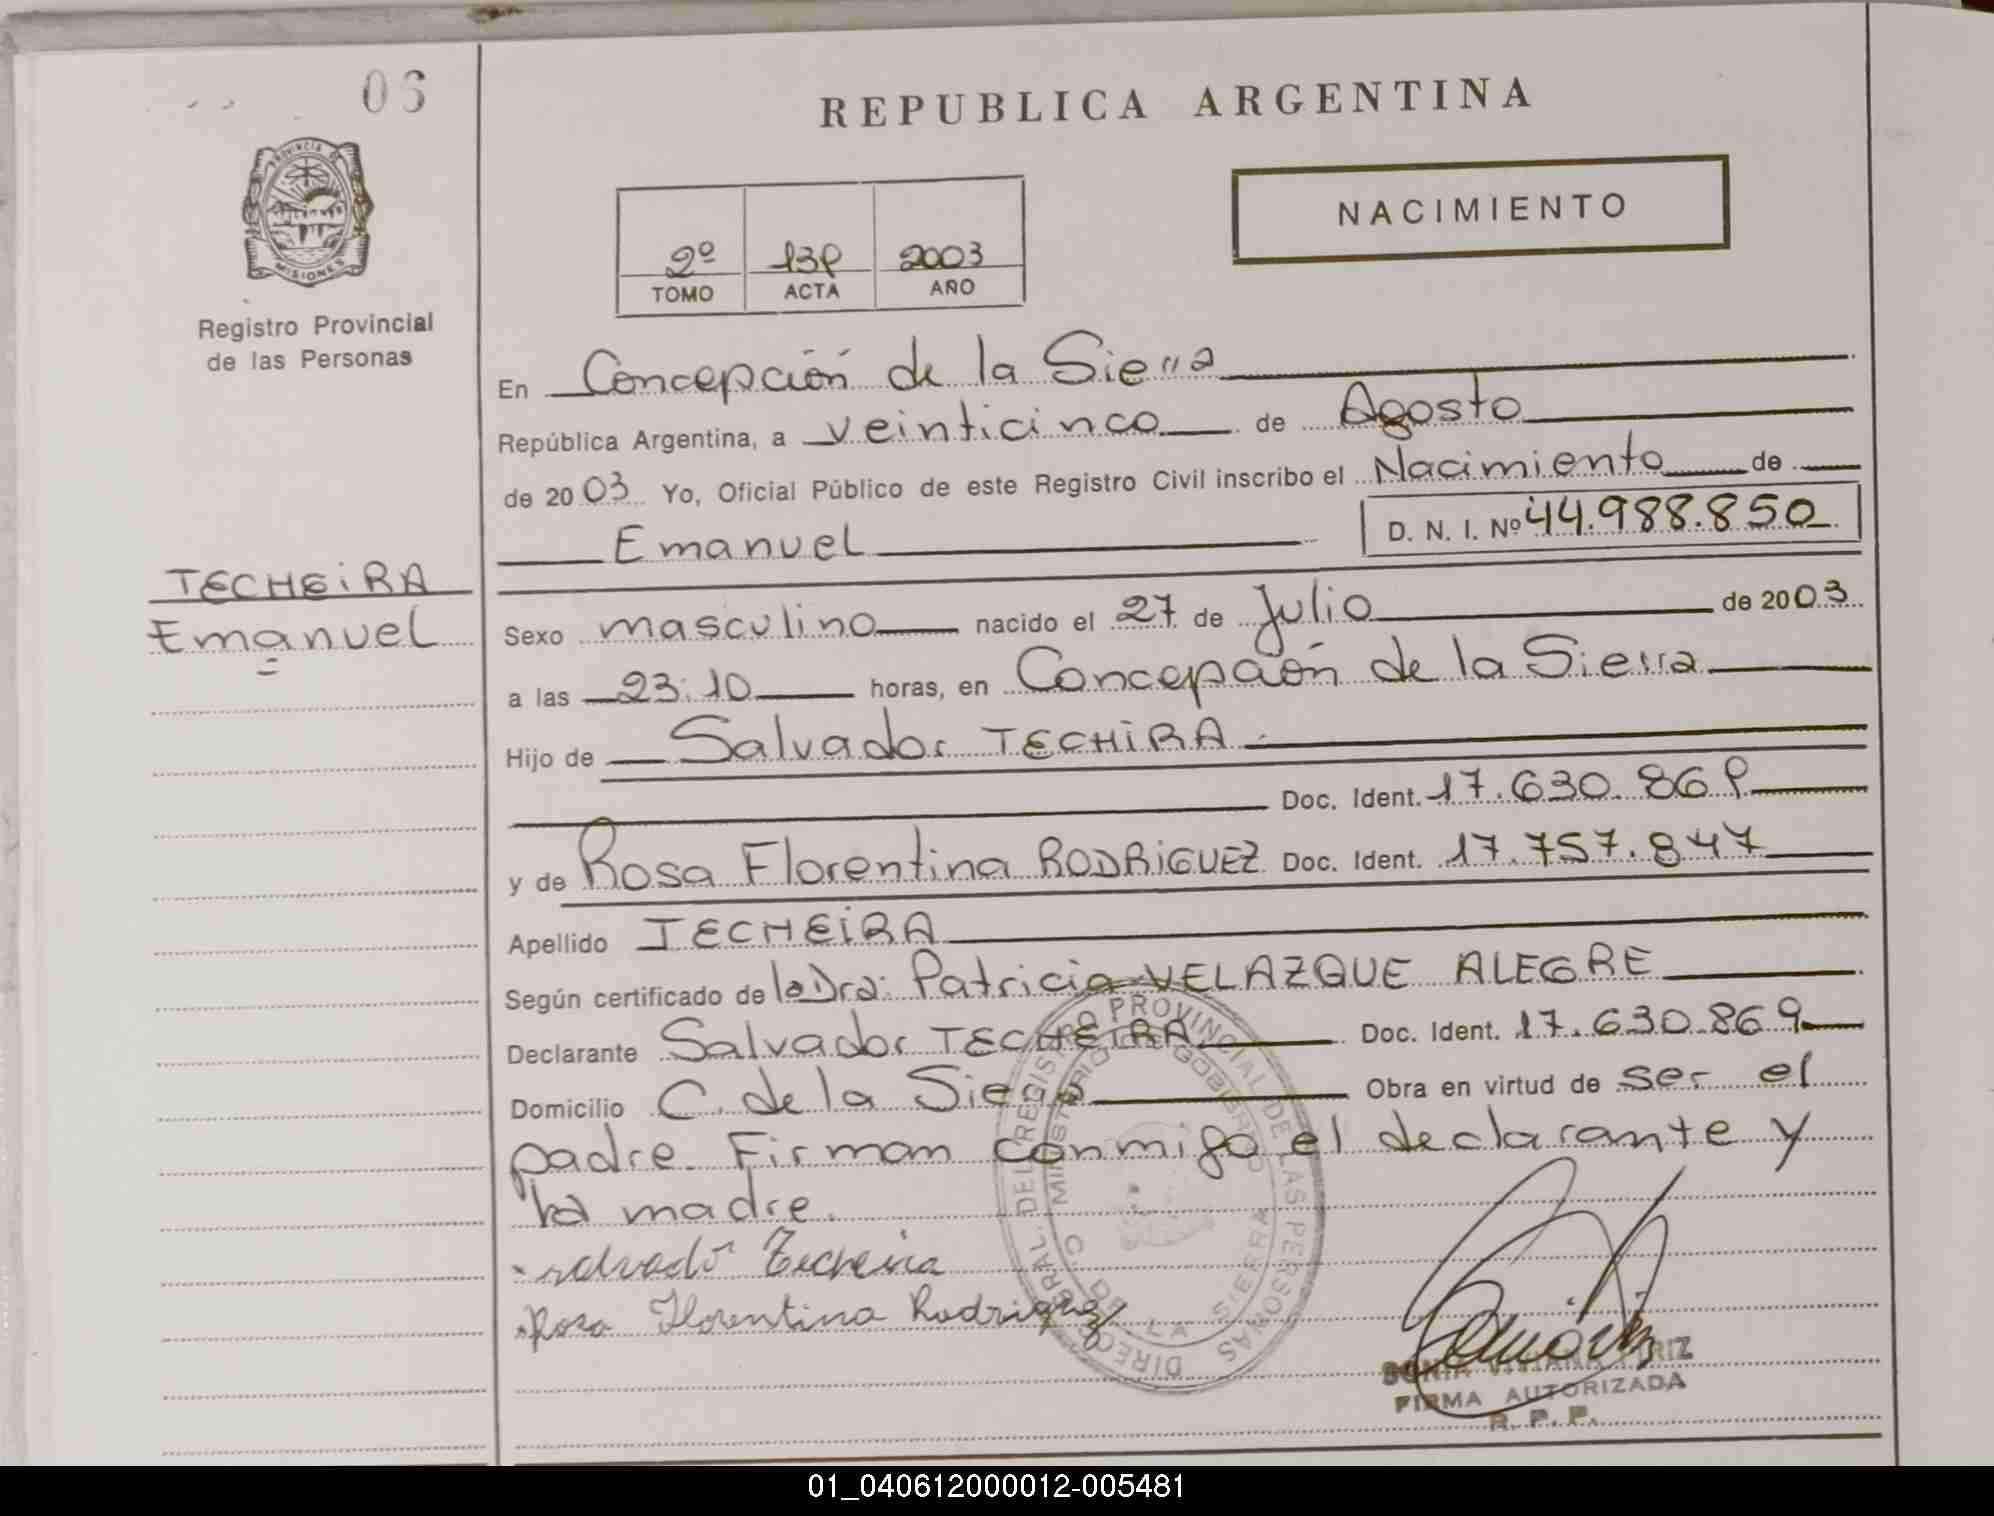 06
REPUBLICA ARGENTINA
PROVINCIA DE
MISIONES
NACIMIENTO
2º 139 2003
TOMO ACTA AÑO
Registro Provincial
de las Personas
En Concepción de la Sierra
República Argentina, a veinticinco de Agosto
de 2003 Yo, Oficial Público de este Registro Civil inscribo el Nacimiento de
Emanuel D. N. I. Nº 44.988.850
TECHEiRA
Emanuel
Sexo masculino nacido el 27 de Julio de 2003
a las 23:10 horas, en Concepción de la Sierra
Hijo de Salvador TECHiRA
Doc. Ident. 17.630.869
y de Rosa Florentina RODRiGUEZ Doc. Ident. 17.757.847
Apellido TECHEiRA
Según certificado de la Dra: Patricia VELAZQUE ALEGRE
Declarante Salvador TECHEIRA Doc. Ident. 17.630.869
Domicilio C. de la Sierra Obra en virtud de ser el
padre. Firman conmigo el declarante y
la madre.
salvador Techeira
Rosa Florentina Rodriguez
DIRECC. GRAL. DEL REGISTRO PROVINCIAL DE LAS PERSONAS
MINISTERIO DE GOBIERNO
C. DE LA SIERRA
SONIA
FIRMA AUTORIZADA
R. P. P.
01_040612000012-005481